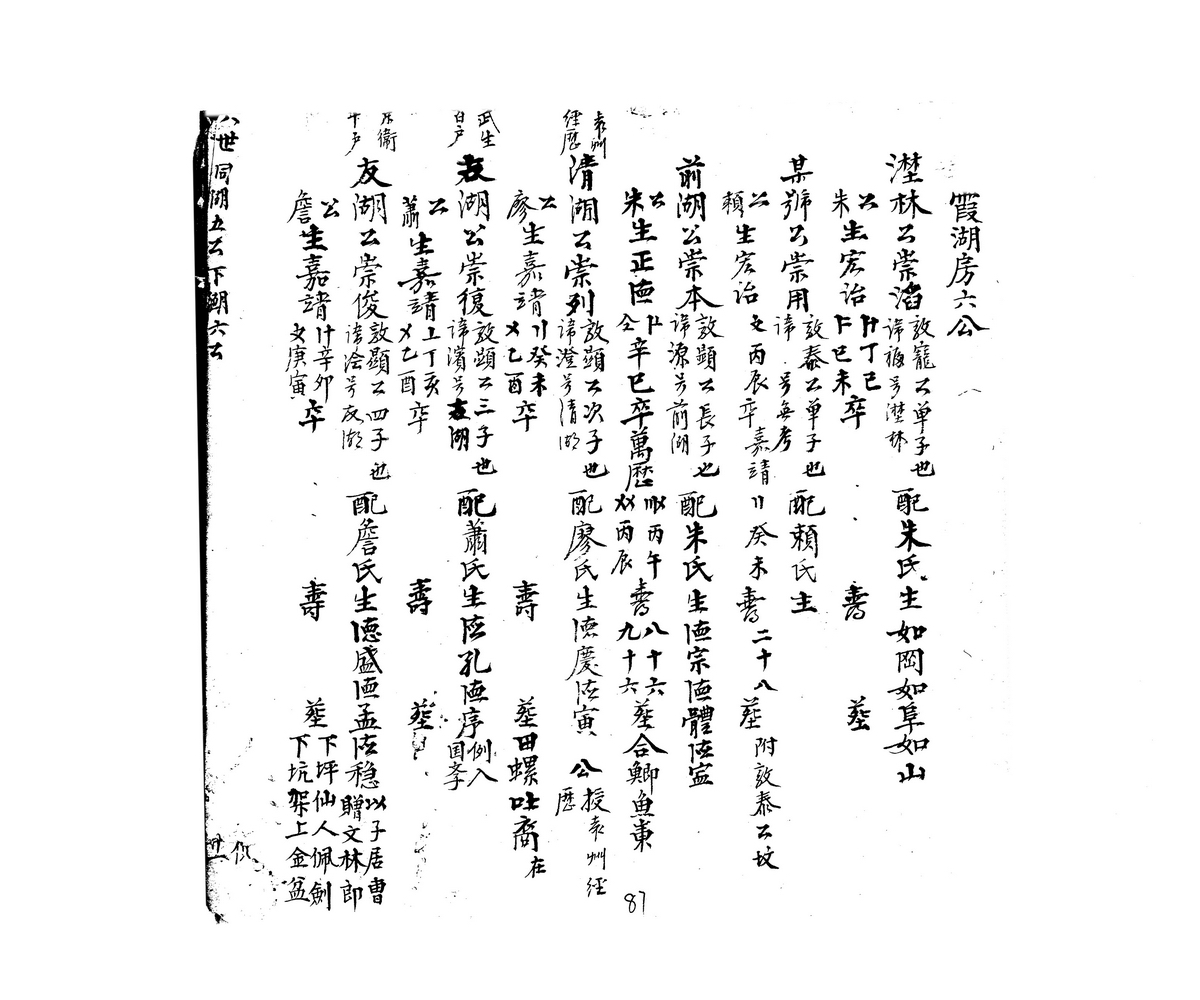 霞湖房六公
灋林公崇滔 敦寵公单子也 諱 号灋林 配朱氏生如岡如阜如山
公 朱 生宏治 丁巳 巳未 卒 壽 塟
某號公崇用 敦泰公单子也 諱 号無考 配頼氏主
公 頼 生宏治 丙辰卒嘉靖〢癸未壽二十八塟附敦泰公坟
前湖公崇本 敦顕公長子也 諱源号前湖 配朱氏生德宗德體德寍
公 朱 生正德 辛巳 卒萬歷 丙午 丙辰 壽 八十六 九十六 塟合鯽魚東
袁州 經歷
清湖公崇列 敦顕公次子也 諱澄号清湖 配廖氏生德慶德寅 公授袁州經歷
公 廖 生嘉靖 〢癸未 〤乙酉 卒 壽 塟田螺吐裔在
武生 百户
友湖公崇復 敦顕公三子也 諱濱号友湖 配蕭氏生德孔德序 例入国孝
公 蕭 生嘉靖 〦丁亥 〤乙酉 卒 壽 塟
衛 千户
友湖公崇俊 敦顕公四子也 諱浍号友湖 配詹氏生德盛德孟德稳 以子居曹 贈文林郎
公 詹 生嘉靖 〸辛卯 庚寅 卒 壽 塟 下坪仙人佩劍 下坑架上金盆
八世同湖五公下湖六公
87